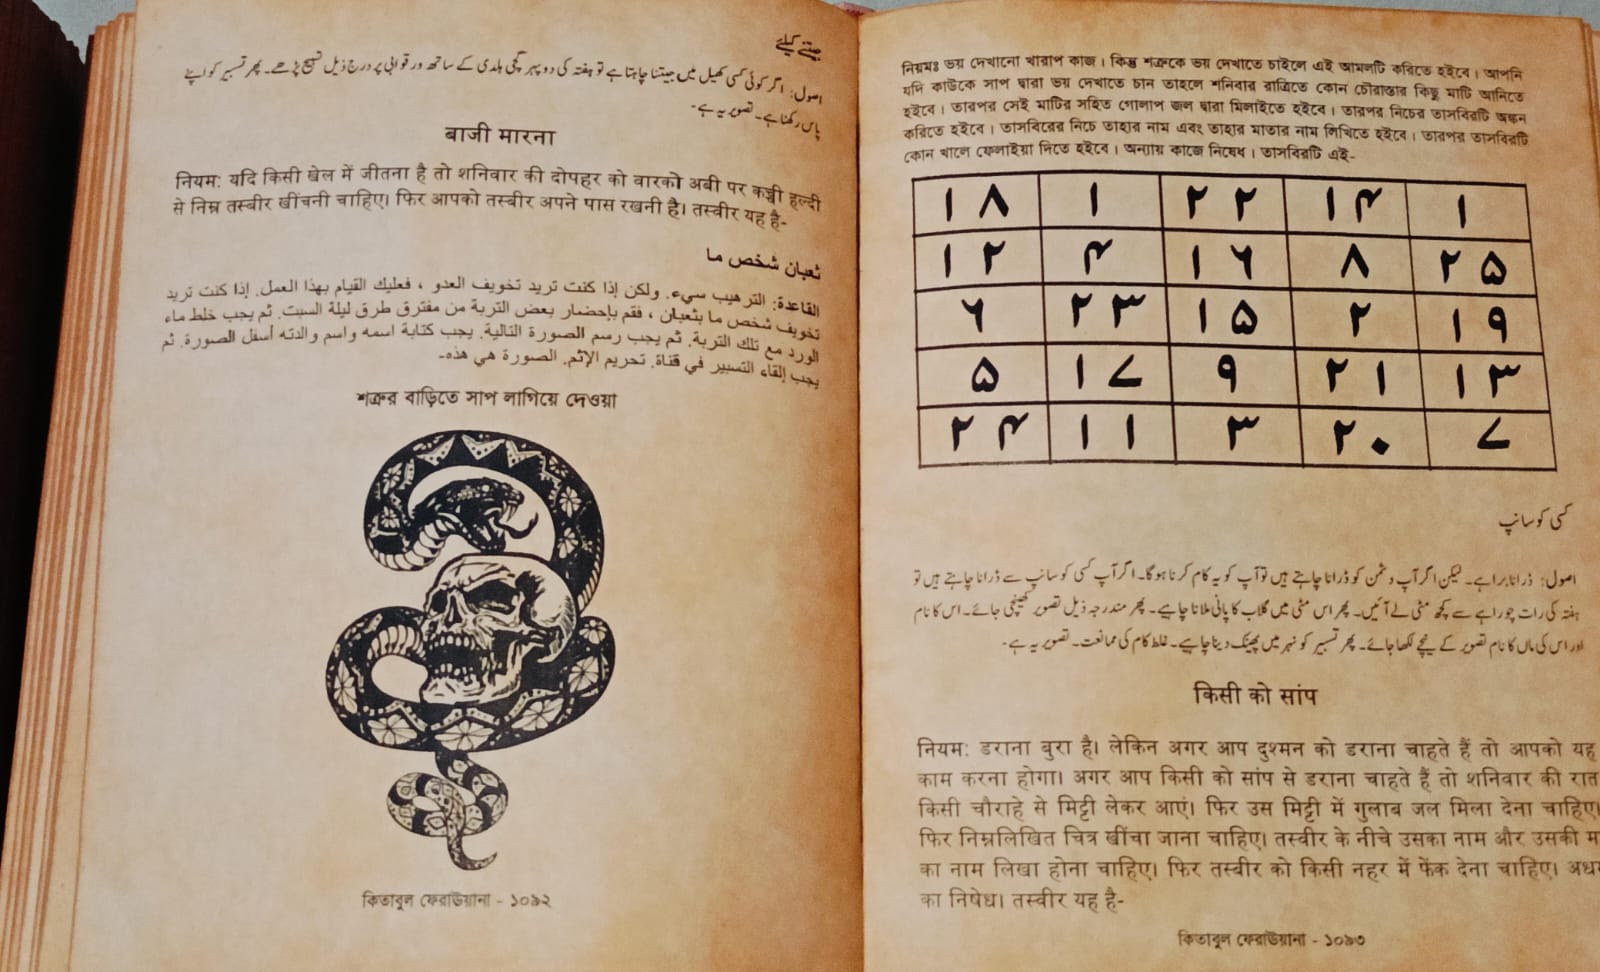 جیتنے کیلیے
اصول: اگر کوئی کسی کھیل میں جیتنا چاہتا ہے تو ہفتہ کی دوپہر کچی ہلدی کے ساتھ ورقوابی پر درج ذیل تسبیح پڑھے۔ پھر تسبیر کو اپنے
پاس رکھنا ہے۔ تصویر یہ ہے۔
बाजी मारना
नियम: यदि किसी खेल में जीतना है तो शनिवार की दोपहर को वारको अबी पर कच्ची हल्दी
से निम्न तस्बीर खींचनी चाहिए। फिर आपको तस्वीर अपने पास रखनी है। तस्वीर यह है-
ثعبان شخص ما
القاعدة: الترهيب سيء. ولكن إذا كنت تريد تخويف العدو ، فعليك القيام بهذا العمل. إذا كنت تريد
تخويف شخص ما بثعبان ، فقم بإحضار بعض التربة من مفترق طرق ليلة السبت. ثم يجب خلط ماء
الورد مع تلك التربة. ثم يجب رسم الصورة التالية. يجب كتابة اسمه واسم والدته أسفل الصورة. ثم
يجب إلقاء التسبير في قناة. تحريم الإثم. الصورة هي هذه-
শত্রুর বাড়িতে সাপ লাগিয়ে দেওয়া
কিতাবুল ফেরাউয়ানা - ১০৯২
নিয়মঃ ভয় দেখানো খারাপ কাজ। কিন্তু শত্রুকে ভয় দেখাতে চাইলে এই আমলটি করিতে হইবে। আপনি
যদি কাউকে সাপ দ্বারা ভয় দেখাতে চান তাহলে শনিবার রাত্রিতে কোন চৌরাস্তার কিছু মাটি আনিতে
হইবে। তারপর সেই মাটির সহিত গোলাপ জল দ্বারা মিলাইতে হইবে। তারপর নিচের তাসবিরটি অঙ্কন
করিতে হইবে। তাসবিরের নিচে তাহার নাম এবং তাহার মাতার নাম লিখিতে হইবে। তারপর তাসবিরটি
কোন খালে ফেলাইয়া দিতে হইবে। অন্যায় কাজে নিষেধ। তাসবিরটি এই-
۱۸ ۱ ۲۲ ۱۴ ۱
۱۲ ۴ ۱۶ ۸ ۲۵
۶ ۲۳ ۱۵ ۲ ۱۹
۵ ۱۷ ۹ ۲۱ ۱۳
۲۴ ۱۱ ۳ ۲۰ ۷
کسی کو سانپ
اصول: ڈرانا برا ہے۔ لیکن اگر آپ دشمن کو ڈرانا چاہتے ہیں تو آپ کو یہ کام کرنا ہوگا۔ اگر آپ کسی کو سانپ سے ڈرانا چاہتے ہیں تو
ہفتہ کی رات چوراہے سے کچھ مٹی لے آئیں۔ پھر اس مٹی میں گلاب کا پانی ملانا چاہیے۔ پھر مندرجہ ذیل تصویر کھینچی جائے۔ اس کا نام
اور اس کی ماں کا نام تصویر کے نیچے لکھا جائے۔ پھر تسبیر کو نہر میں پھینک دینا چاہیے۔ غلط کام کی ممانعت۔ تصویر یہ ہے۔
किसी को सांप
नियम: डराना बुरा है। लेकिन अगर आप दुश्मन को डराना चाहते हैं तो आपको यह
काम करना होगा। अगर आप किसी को सांप से डराना चाहते हैं तो शनिवार की रात
किसी चौराहे से मिट्टी लेकर आएं। फिर उस मिट्टी में गुलाब जल मिला देना चाहिए।
फिर निम्नलिखित चित्र खींचा जाना चाहिए। तस्वीर के नीचे उसका नाम और उसकी
का नाम लिखा होना चाहिए। फिर तस्वीर को किसी नहर में फेंक देना चाहिए।
का निषेध। तस्वीर यह है-
কিতাবুল ফেরাউয়ানা - ১০৯৩